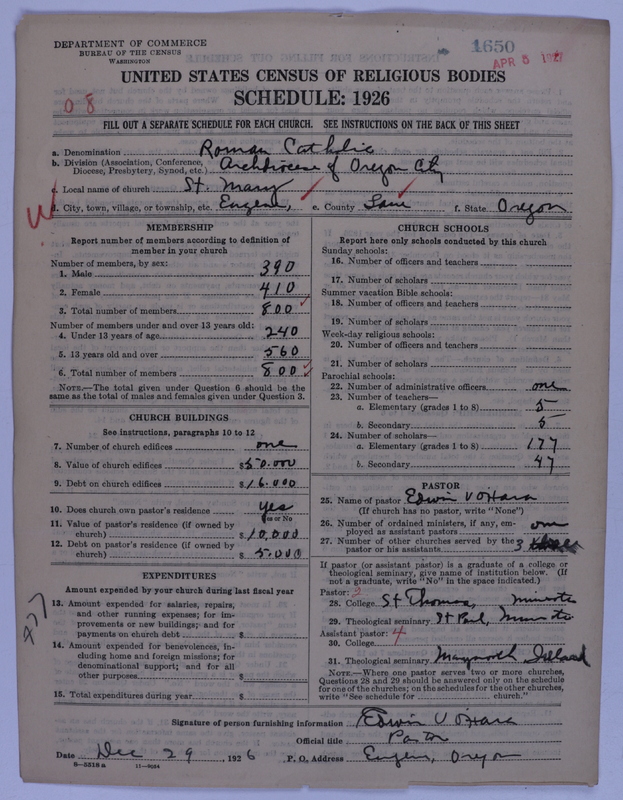 DEPARTMENT OF COMMERCE
BUREAU OF THE CENSUS
WASHINGTON
1650
APR 5 1927
08
UNITED STATES CENSUS OF RELIGIOUS BODIES
SCHEDULE: 1926
FILL OUT A SEPARATE SCHEDULE FOR EACH CHURCH. SEE INSTRUCTIONS ON THE BACK OF THIS SHEET
a. Denomination Roman Catholic
b. Division (Association, Conference, Diocese, Presbytery, Synod, etc.) Archdiocese of Oregon City
c. Local name of church St. Mary
d. City, town, village, or township, etc. Eugene, e. County Lane f. State Oregon
MEMBERSHIP
Report number of members according to definition of member in your church
Number of members, by sex:
1. Male 390
2. Female 410
3. Total number of members 800
Number of members under and over 13 years old:
4. Under 13 years of age 240
5. 13 years old and over 560
6. Total number of members 800
NOTE.—The total given under Question 6 should be the same as the total of males and females given under Question 3.
CHURCH BUILDINGS
See instructions, paragraphs 10 to 12
7. Number of church edifices one
8. Value of church edifices $50.000
9. Debt on church edifices $16.000
10. Does church own pastor's residence? yes
Yes or No
11. Value of pastor's residence (if owned by church) $10,000
12. Debt on pastor's residence (if owned by church) $5.000
EXPENDITURES
Amount expended by your church during last fiscal year
13. Amount expended for salaries, repairs, and other running expenses; for improvements or new buildings; and for payments on church debt $
14. Amount expended for benevolences, including home and foreign missions; for denominational support; and for all other purposes $
15. Total expenditures during year $
CHURCH SCHOOLS
Report here only schools conducted by this church
Sunday schools:
16. Number of officers and teachers
17. Number of scholars
Summer vacation Bible schools:
18. Number of officers and teachers
19. Number of scholars
Week-day religious schools:
20. Number of officers and teachers
21. Number of scholars
Parochial schools:
22. Number of administrative officers one
23. Number of teachers—
a. Elementary (grades 1 to 8) 5
b. Secondary 5
24. Number of scholars—
a. Elementary (grades 1 to 8) 177
b. Secondary 47
PASTOR
25. Name of pastor Edwin V O'Hara
(If church has no pastor, write "None")
26. Number of ordained ministers, if any, employed as assistant pastors one
27. Number of other churches served by the pastor or his assistants 3
If pastor (or assistant pastor) is a graduate of a college or theological seminary, give name of institution below. (If not a graduate, write "No" in the space indicated.)
Pastor: 2
28. College St Thomas,
29. Theological seminary St Paul,
Assistant pastor: 4
30. College
31. Theological seminary Maynooth Ireland
NOTE.—Where one pastor serves two or more churches, Questions 28 and 29 should be answered only on the schedule for one of the churches; on the schedules for the other churches, write "See schedule for church."
Signature of person furnishing information Edwin V O'Hara
Official title Pastor
Date Dec 29, 1926 P. O. Address Eugene, Oregon
8—5318 a 11—9024